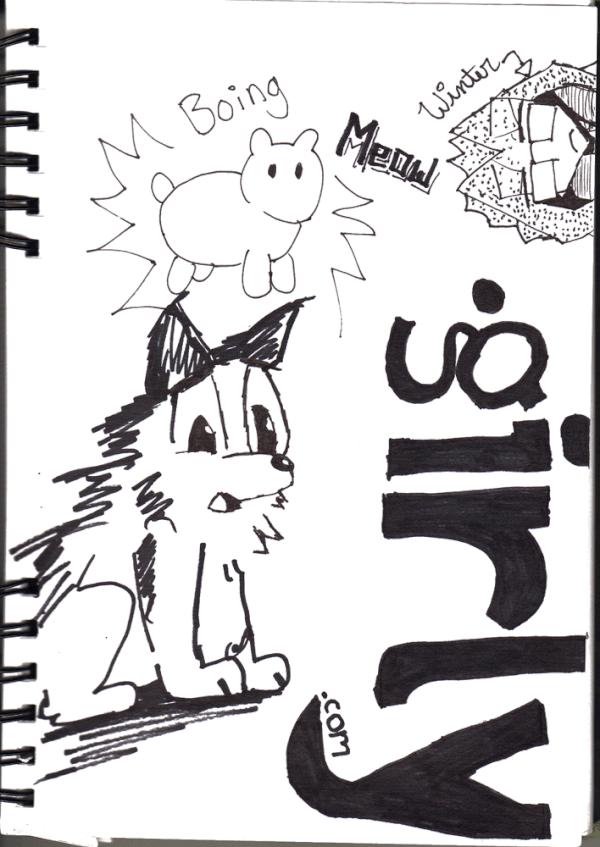 Boing
Meow
Winter
girly
.com